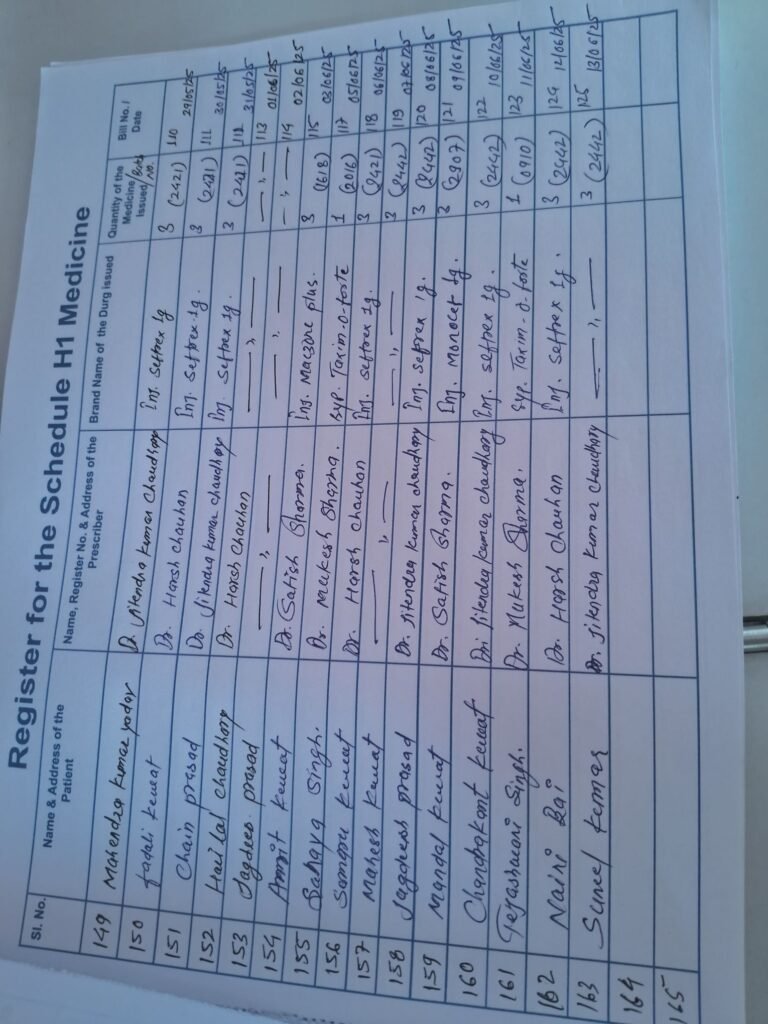 Register for the Schedule H1 Medicine
Sl. No. Name & Address of the Patient Name, Register No. & Address of the Prescriber Brand Name of the Durg issued Quantity of the Medicine Issued/ Batch No. Bill No. / Date
149 Mahendra Kumar yadav Dr. Jitendra Kumar Chaudhary Inj. Seftrex 1g 3 (2421) 110 29/05/25
150 Kewat Dr. Harsh Chauhan Inj. Seftrex 1g. 3 (2421) 111 30/05/25
151 Chain prasad Dr. Jitendra Kumar chaudhary Inj. Seftrex 1g. 3 (2421) 112 31/05/25
152 Harilal chaudhary Dr. Harsh Chauhan — ,, — — ,, — 113 01/06/25
153 Jagdees prasad — ,, — — ,, — — ,, — 114 02/06/25
154 Amrit Kewat Dr. Satish Sharma. Inj. Maczone plus. 3 (1618) 115 03/06/25
155 Singh. Dr. Mukesh Sharma. Syp. Taxim-o-forte 1 (2016) 117 05/06/25
156 Kewat Dr. Harsh Chauhan Inj. Seftrex 1g. 3 (2421) 118 06/06/25
157 Mahesh Kewat — ,, — — ,, — 3 (2442) 119 07/06/25
158 Jagdeesh prasad Dr. Jitendra Kumar chaudhary Inj. Seftrex 1g. 3 (2442) 120 08/06/25
159 Mandal Kewat Dr. Satish Sharma. Inj. Monocef 1g. 3 (2907) 121 09/06/25
160 Chandrakant Kewat Dr. Jitendra Kumar chaudhary Inj. Seftrex 1g. 3 (2442) 122 10/06/25
161 Tejashwani Singh. Dr. Mukesh Sharma. Syp. Taxim-o-forte 1 (0910) 123 11/06/25
162 Naini Bai Dr. Harsh Chauhan Inj. Seftrex 1g. 3 (2442) 124 12/06/25
163 Suneel Kumar Dr. Jitendra Kumar Chaudhary — ,, — 3 (2442) 125 13/06/25
164
165